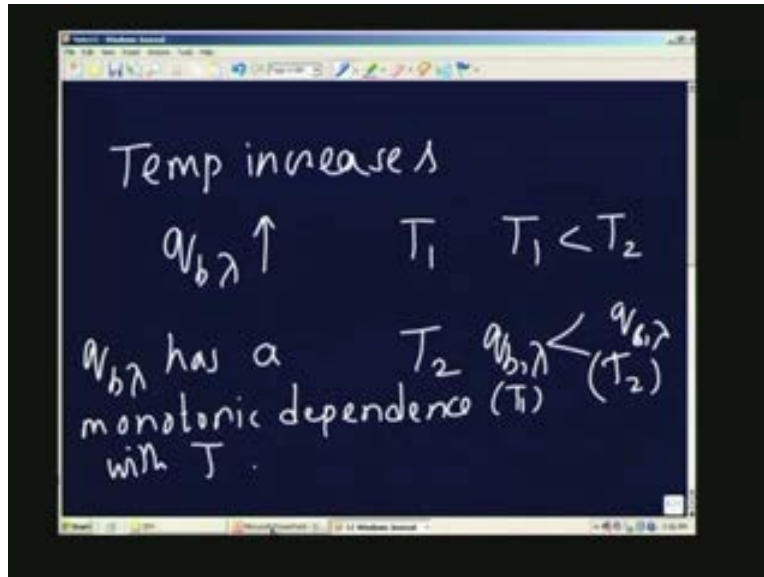 Temp increases
q_bλ ↑ T₁ T₁ < T₂
q_bλ has a T₂ q_b,λ (T₁) < q_b,λ (T₂)
monotonic dependence
with T.